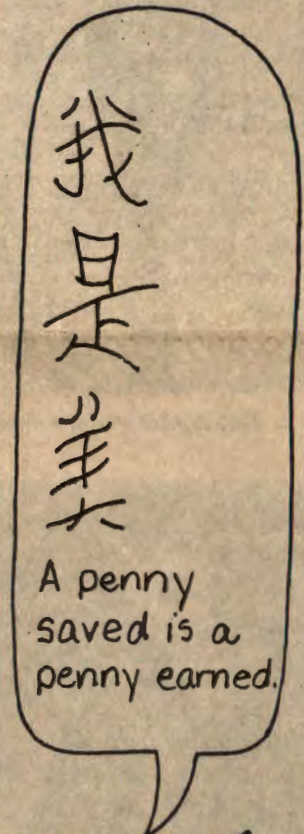 我
是
美
A penny
saved is a
penny earned.